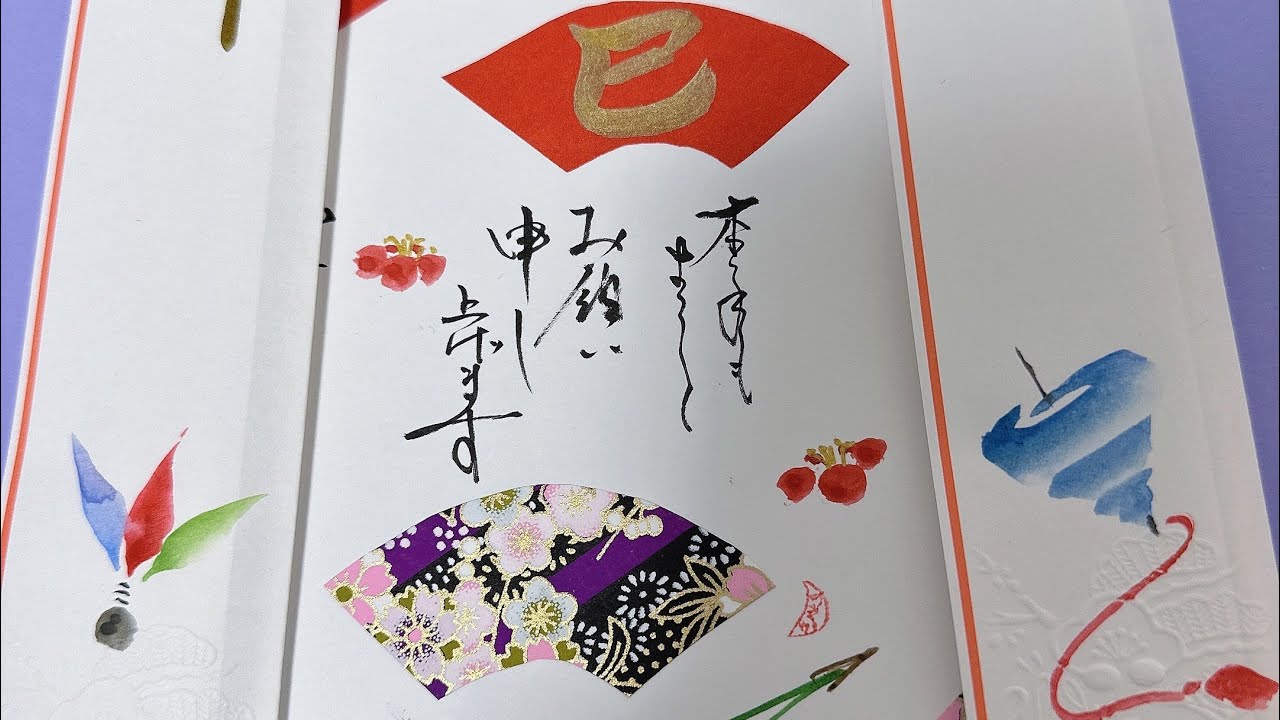 巳
本年も
よろしく
お願い
申し
上げます